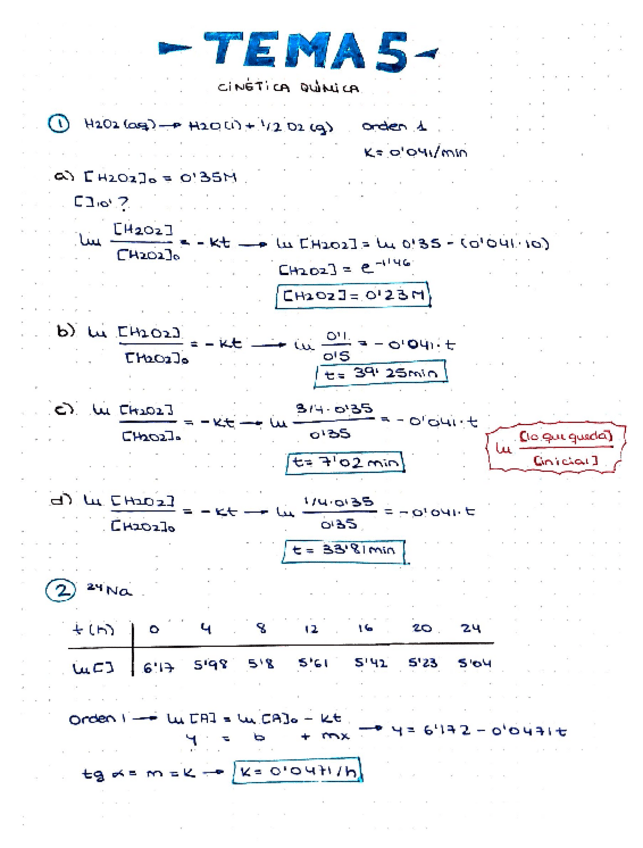 TEMA 5
CINÉTICA QUÍMICA
① H2O2 (aq) → H2O (l) + 1/2 O2 (g) orden 1
K = 0'041/min
a) [H2O2]0 = 0'35M
[]10' ?
ln [H2O2]/[H2O2]0 = -Kt → ln [H2O2] = ln 0'35 - (0'041·10)
[H2O2] = e^-1'46
[H2O2] = 0'23M
b) ln [H2O2]/[H2O2]0 = -Kt → ln 0'1/0'5 = -0'041·t
t = 39'25min
c) ln [H2O2]/[H2O2]0 = -Kt → ln 3/4·0'35/0'35 = -0'041·t
t = 7'02min
ln [lo que queda]/[inicial]
d) ln [H2O2]/[H2O2]0 = -Kt → ln 1/4·0'35/0'35 = -0'041·t
t = 33'81min
② 24Na
t(h) 0 4 8 12 16 20 24
ln[] 6'17 5'98 5'8 5'61 5'42 5'23 5'04
Orden 1 → ln [A] = ln [A]0 - Kt
y = b + mx → y = 6'172 - 0'0471t
tg α = m = K → K = 0'0471/h